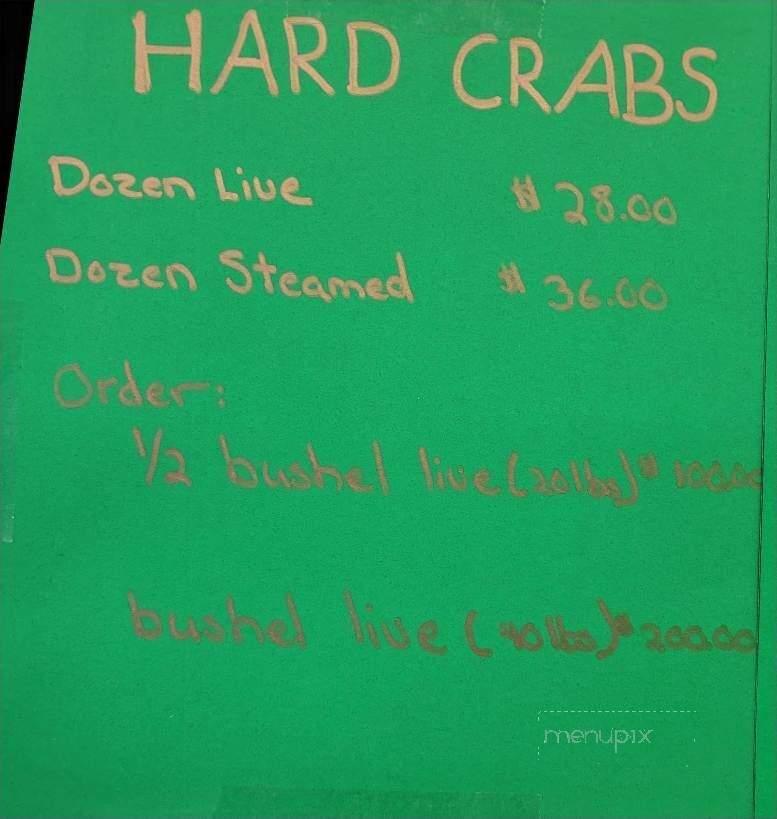 HARD CRABS
Dozen Live $ 28.00
Dozen Steamed $ 36.00
Order:
1/2 bushel live (20lbs) $ 100.00
bushel live (40lbs) $ 200.00
menupix